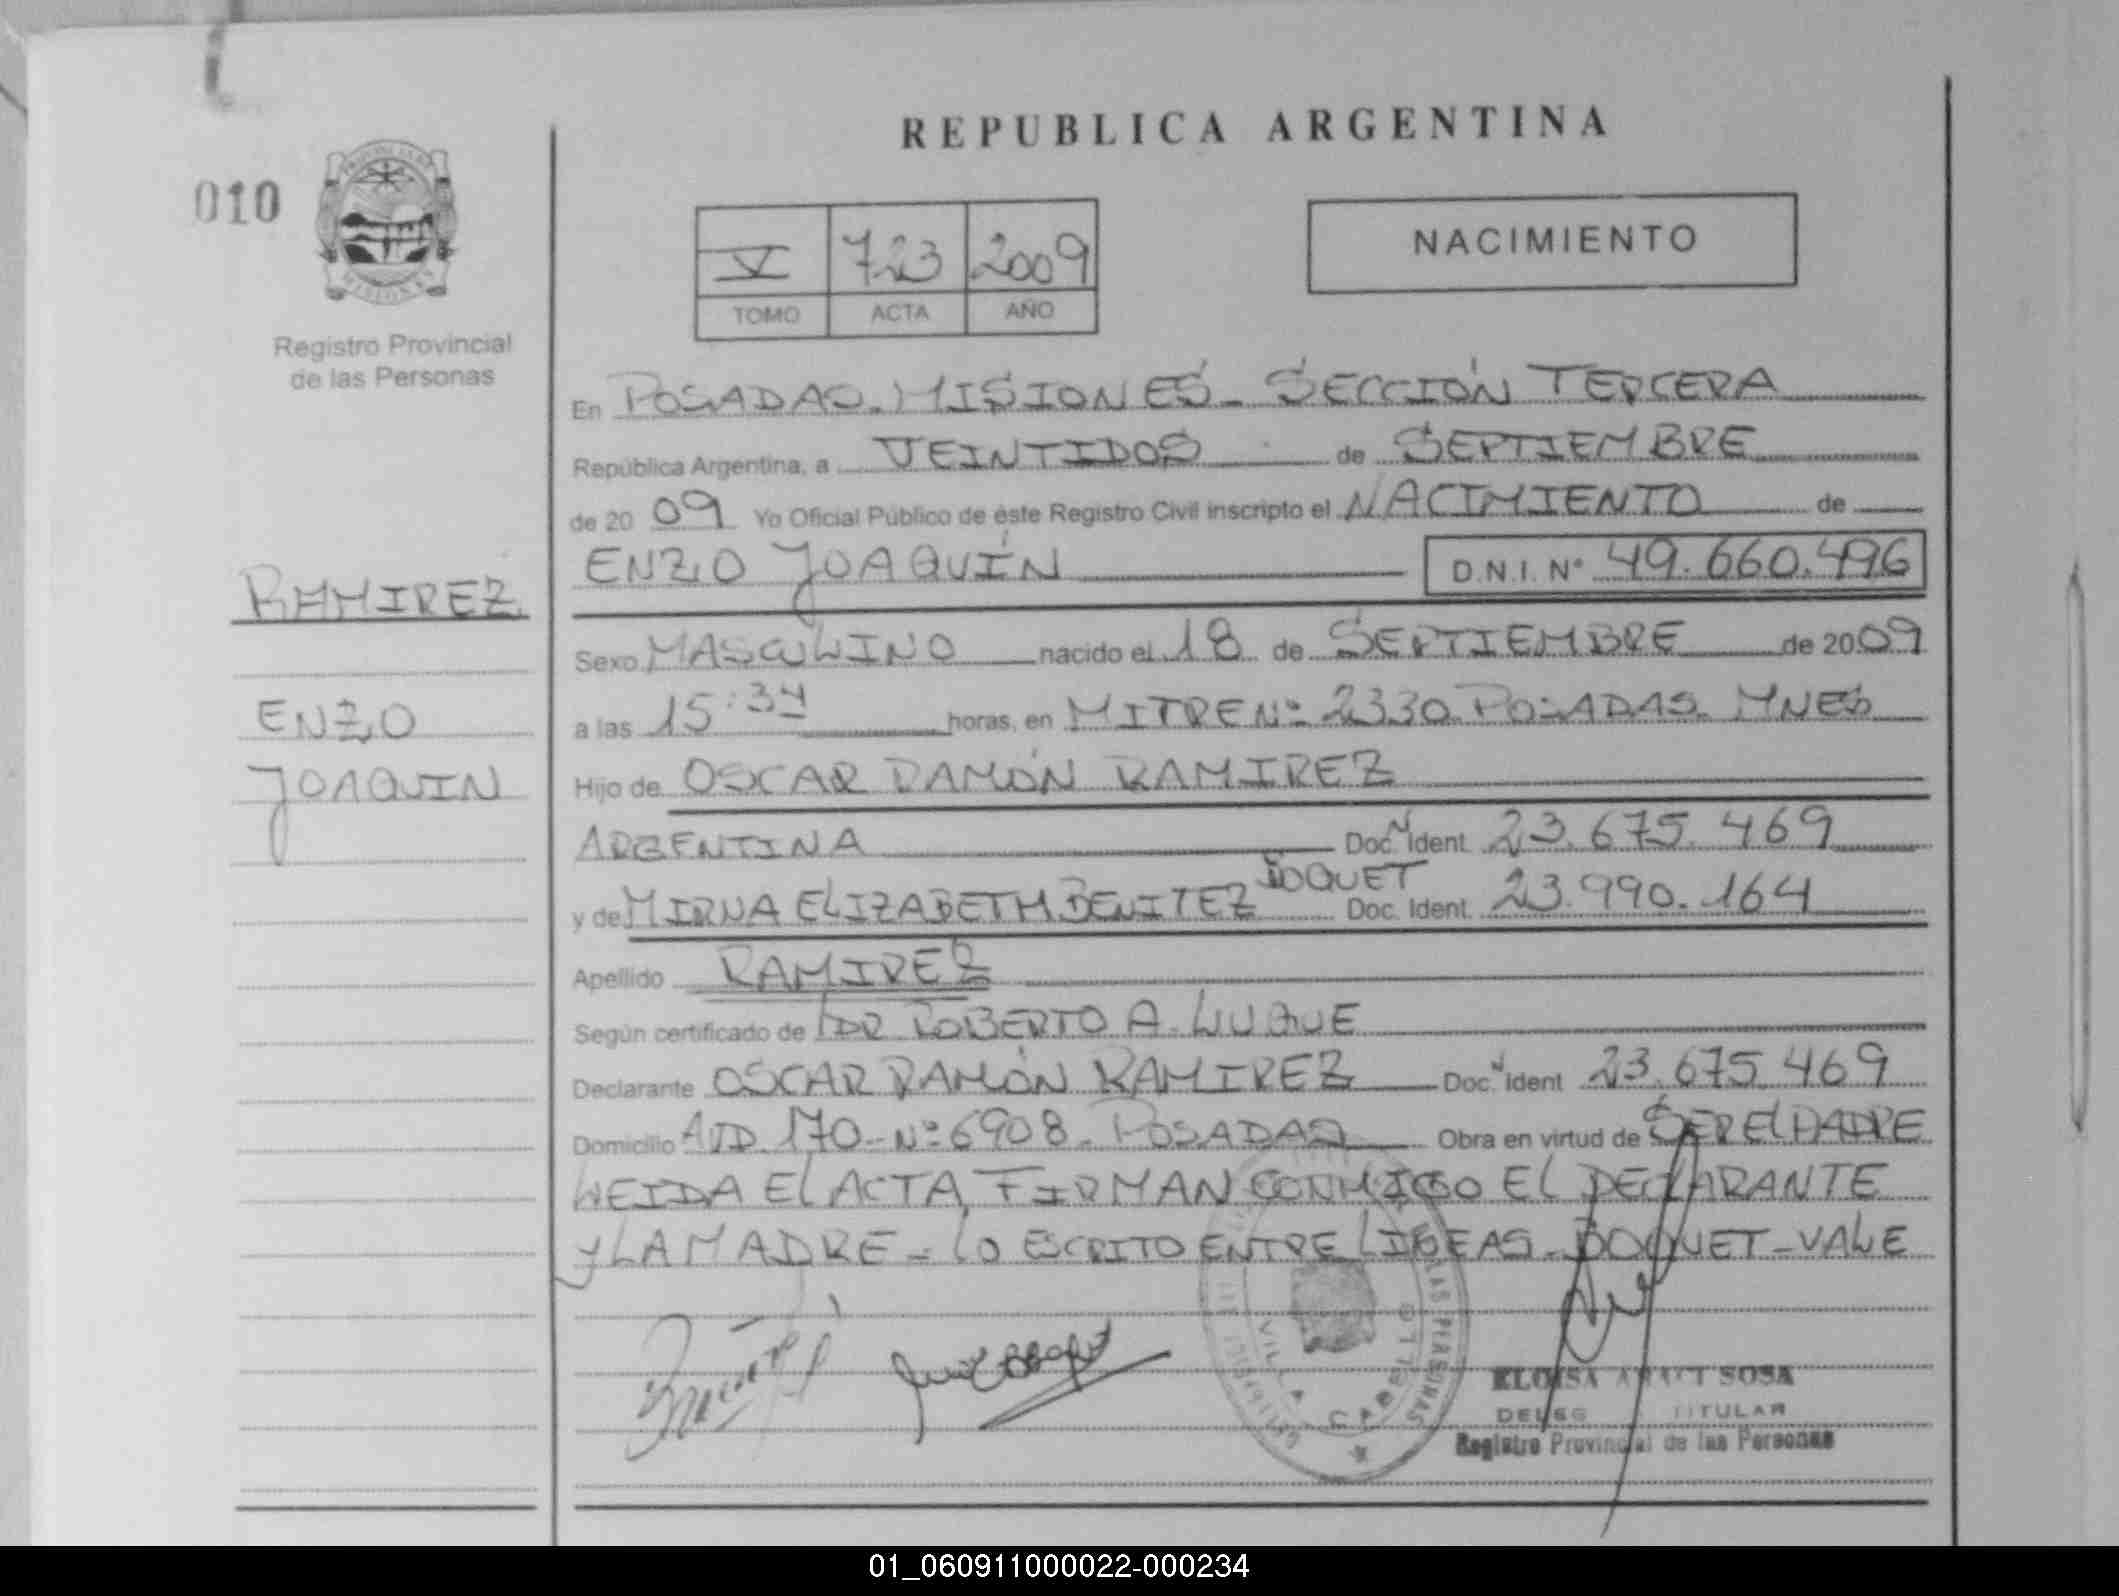 REPUBLICA ARGENTINA
010
NACIMIENTO
V 723 2009
TOMO ACTA AÑO
Registro Provincial
de las Personas
En POSADAS. MISIONES - SECCIÓN TERCERA
República Argentina, a VEINTIDOS de SEPTIEMBRE
de 20 09 Yo Oficial Público de éste Registro Civil inscripto el NACIMIENTO de
ENZO JOAQUÍN D.N.I. Nº 49.660.496
RAMIREZ
Sexo MASCULINO nacido el 18 de SEPTIEMBRE de 2009
ENZO
a las 15:34 horas, en MITRE Nº 2330 POSADAS. MNES
JOAQUIN
Hijo de OSCAR RAMÓN RAMIREZ
ARGENTINA Doc. N Ident. 23.675.469
y de MIRNA ELIZABETH BENITEZ DOQUET Doc. Ident. 23.990.164
Apellido RAMIREZ
Según certificado de DR ROBERTO A. LUQUE
Declarante OSCAR RAMÓN RAMIREZ Doc. N Ident 23.675.469
Domicilio AVD. 170 - Nº 6908 - POSADAS Obra en virtud de SER EL PADRE
LEIDA EL ACTA, FIRMAN CONMIGO EL DECLARANTE
Y LA MADRE - LO ESCRITO ENTRE LINEAS - DOQUET - VALE
VILLA CABELLO
ELOISA SOSA
TITULAR
Registro Provincial de las Personas
01_060911000022-000234